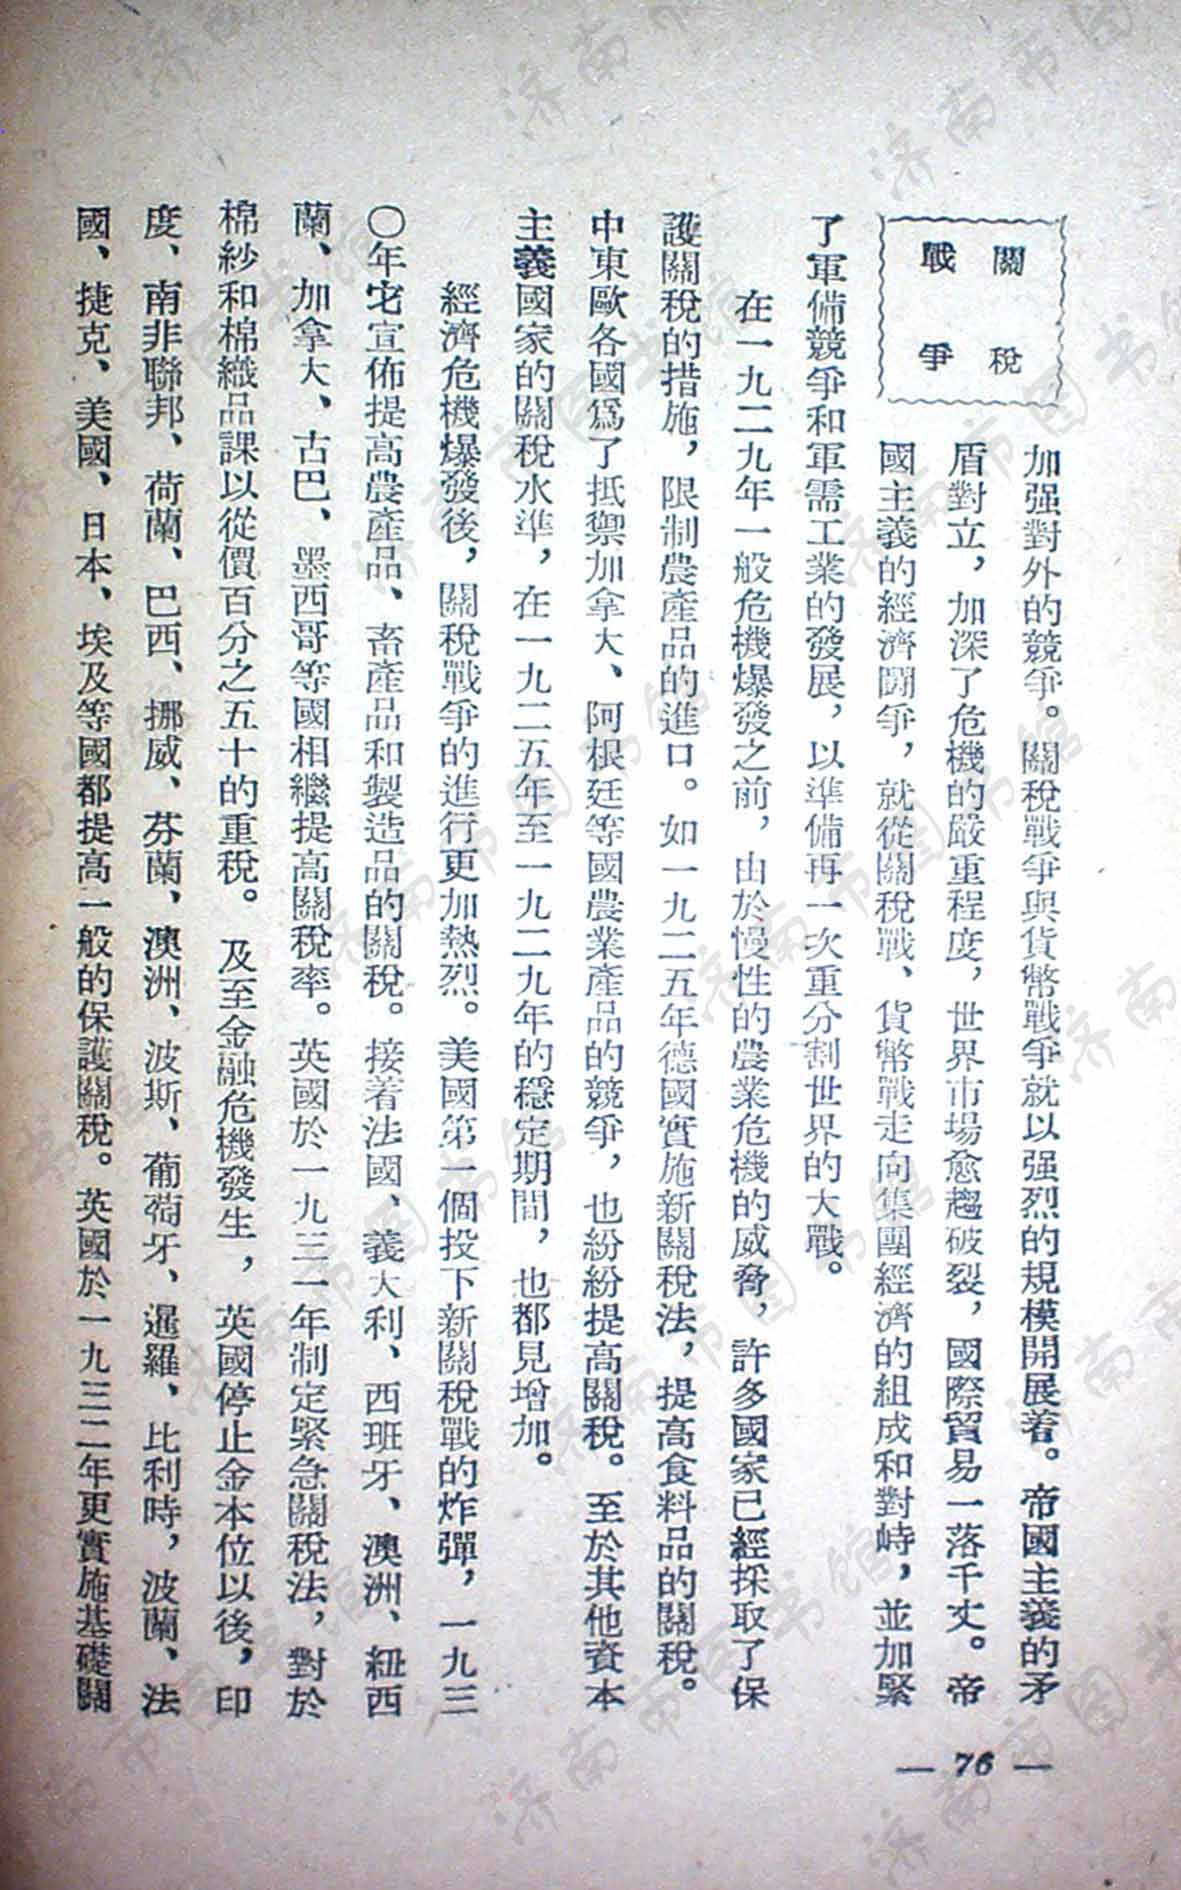 關稅
戰爭
加强對外的競爭。關稅戰爭與貨幣戰爭就以强烈的規模開展着。帝國主義的矛
盾對立，加深了危機的嚴重程度，世界市場愈趨破裂，國際貿易一落千丈。帝
國主義的經濟鬪爭，就從關稅戰、貨幣戰走向集團經濟的組成和對峙，並加緊
了軍備競爭和軍需工業的發展，以準備再一次重分割世界的大戰。
在一九二九年一般危機爆發之前，由於慢性的農業危機的威脅，許多國家已經採取了保
護關稅的措施，限制農產品的進口。如一九二五年德國實施新關稅法，提高食料品的關稅。
中東歐各國爲了抵禦加拿大、阿根廷等國農業產品的競爭，也紛紛提高關稅。至於其他資本
主義國家的關稅水準，在一九二五年至一九二九年的穩定期間，也都見增加。
經濟危機爆發後，關稅戰爭的進行更加熱烈。美國第一個投下新關稅戰的炸彈，一九三
〇年宅宣佈提高農產品、畜產品和製造品的關稅。接着法國、義大利、西班牙、澳洲、紐西
蘭、加拿大、古巴、墨西哥等國相繼提高關稅率。英國於一九三一年制定緊急關稅法，對於
棉紗和棉織品課以從價百分之五十的重稅。及至金融危機發生，英國停止金本位以後，印
度、南非聯邦、荷蘭、巴西、挪威、芬蘭、澳洲、波斯、葡萄牙、暹羅、比利時，波蘭、法
國、捷克、美國、日本、埃及等國都提高一般的保護關稅。英國於一九三二年更實施基礎關
— 76 —
济南市图书馆